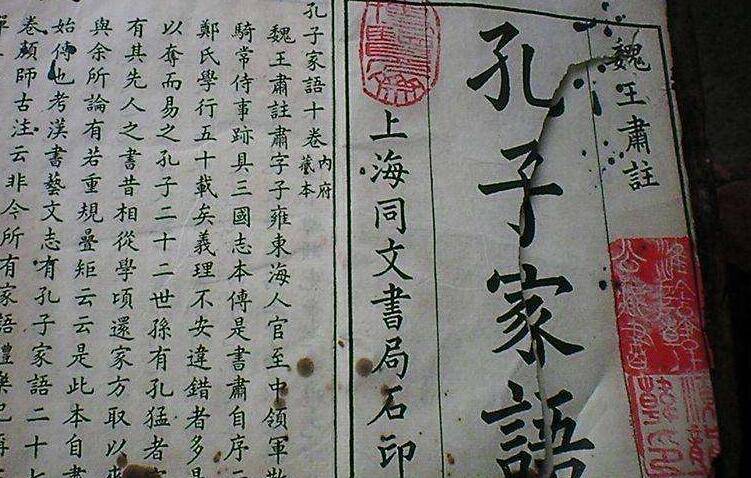 魏王肅註
孔子家語
上海同文書局石印
孔子家語十卷內府藏本
魏王肅註肅字子雍東海人官至中領軍散
騎常侍事跡具三國志本傳是書肅自序
鄭氏學行五十載矣義理不安違錯者多是
以奪而易之孔子二十二世孫有孔猛者家
有其先人之書昔相從學頃還家方取以來
與余所論有若重規疊矩云云是此本自肅
始傳也考漢書藝文志有孔子家語二十七
卷顏師古注云非今所有家語禮樂記